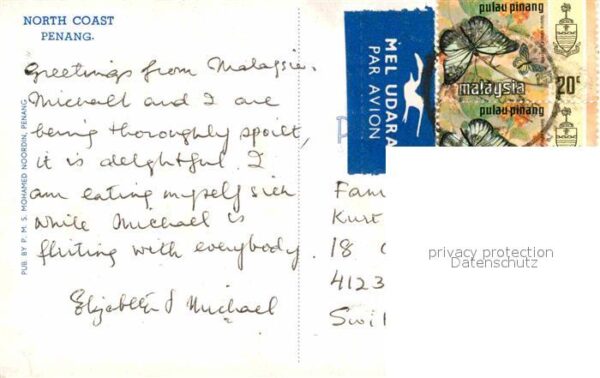 NORTH COAST
PENANG.
Greetings from Malaysia.
Michael and I are
being thoroughly spoilt,
it is delightful. I
am eating myself sick
while Michael is
flirting with everybody.
Elizabeth & Michael
PUB. BY P. M. S. MOHAMED NOORDIN, PENANG
MEL UDARA
PAR AVION
pulau pinang
malaysia 20c
pulau pinang
Fam
Kurt
18
4123
Swit
privacy protection
Datenschutz